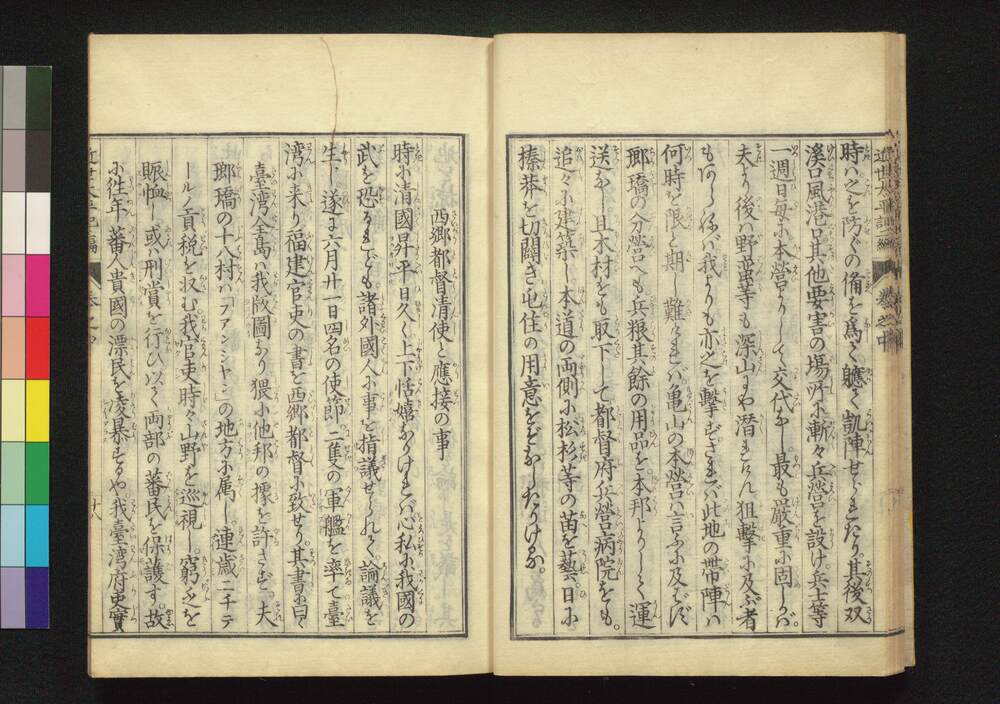 時ハ之を防ぐの備を為して軈て凱陣せられたり。其後双
溪口風港口其他要害の場所に漸々兵營を設け。兵士等
一週日毎に本營よりして交代なし。最も厳重に固しかバ。
夫より後ハ野蛮等も深山にや潜ミけん狙撃に及ぶ者
もあらねバ我よりも亦之を撃ずされバ此地の帯陣ハ
何時を限と期し難けれバ亀山の本營ハ言ふに及ばず
瑯璚の分營へも。兵粮其餘の用品を。本邦よりして運
送なし且木材をも取下して都督府兵營病院をも。
追々に建築し本道の両側に松杉等の苗を藝。日に
榛莽を切闢き屯住の用意をぞなしたりける。
近世太平記二編 巻之中
西郷都督清使と應接の事
時に清國昇平日久く上下恬嬉なりけれバ心私に我國の
武を恐るれども諸外國人に事を指議せられて。論議を
生じ遂に六月廿一日四名の使節二隻の軍艦を率て臺
湾に来り福建官吏の書を西郷都督に致せり。其書に曰く
臺湾全島ハ我版圖なり猥に他邦の據を許さず。夫
瑯璚の十八村ハ「フアンシヤン」の地方に属し。連歳二千テ
ールノ貢税を収む。我官吏時々山野を巡視し。窮乏を
賑恤し或ハ刑賞を行ひ以て両部の蕃民を保護す。故
に往年蕃人貴國の漂民を凌暴するや我臺湾府吏實
十八